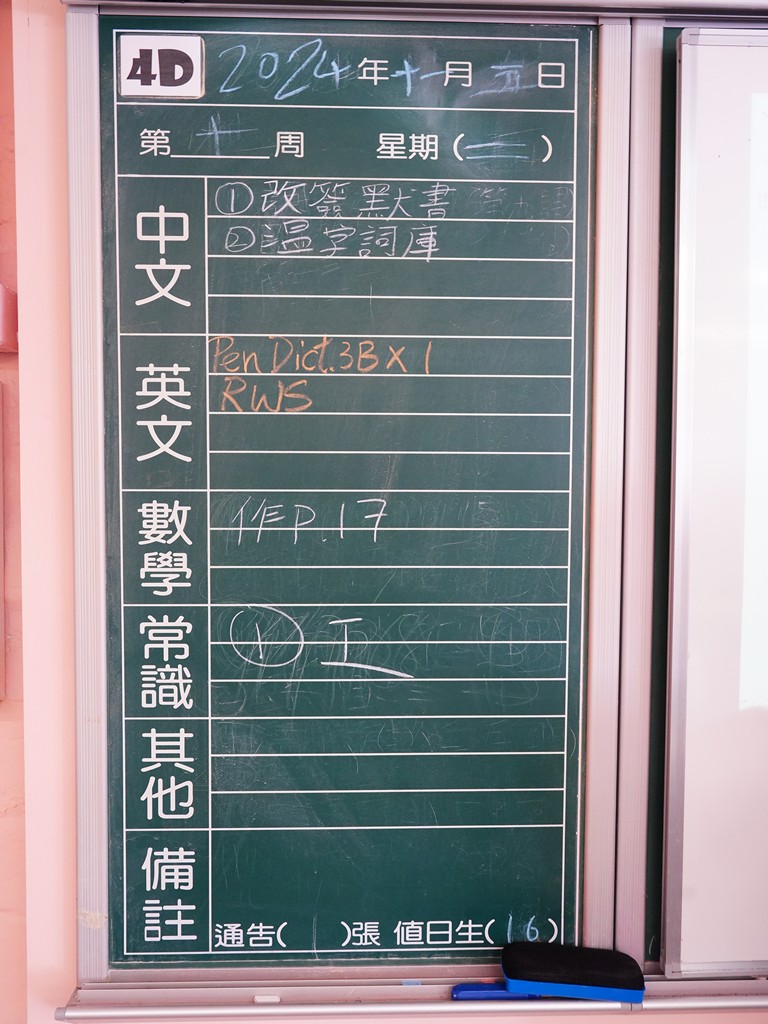 4D 2024年十一月五日
第十周 星期(二)
中文
①改簽默書
②溫字詞庫
英文
Pen Dict.3B x 1
RWS
數學
作P.17
常識
① 工
其他
備註
通告(1)張 值日生(16)